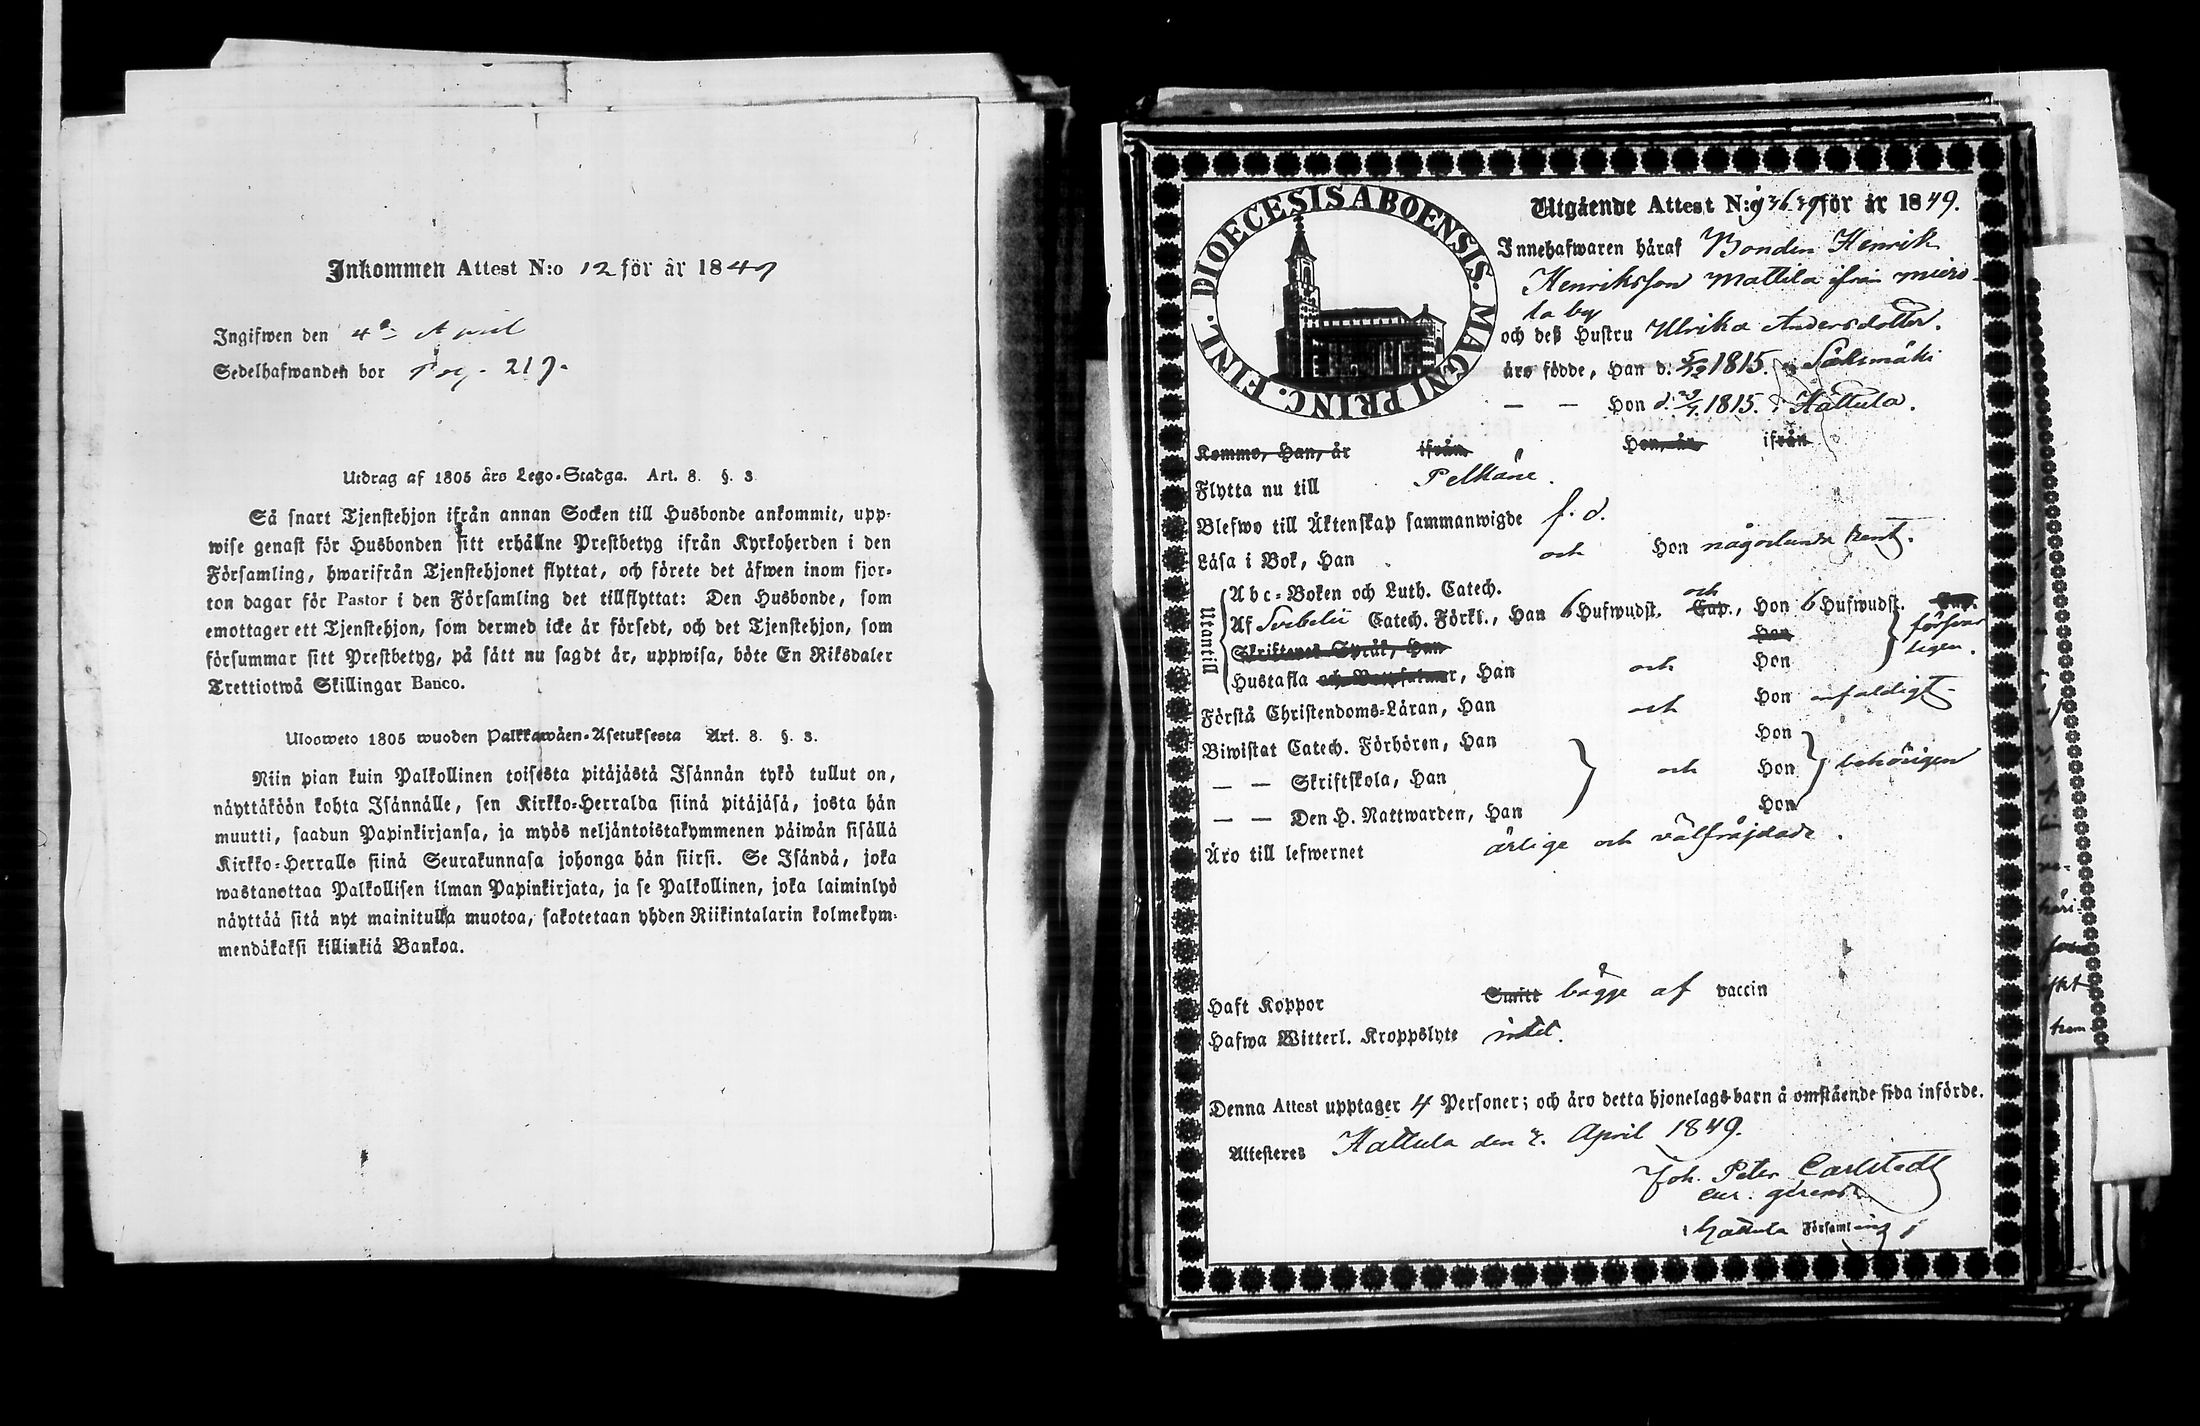 Inkommen Attest N:o 12 för år 1847
Ingifwen den 4de April
Sedelhafwanden bor Pag. 217.
Utdrag af 1805 års Lego-Stadga. Art. 8. §. 3.
Så snart Tjenstehjon ifrån annan Socken till Husbonde ankommit, upp-
wise genast för Husbonden sitt erhållne Prestbetyg ifrån Kyrkoherden i den
Församling, hwarifrån Tjenstehjonet flyttat, och förete det äfwen inom fjor-
ton dagar för Pastor i den Församling det tillflyttat: Den Husbonde, som
emottager ett Tjenstehjon, som dermed icke är försedt, och det Tjenstehjon, som
försummar sitt Prestbetyg, på sätt nu sagdt är, uppwisa, böte En Riksdaler
Trettiotwå Skillingar Banco.
Ulosweto 1805 wuoden Palkkawäen-Asetuksesta Art. 8. §. 3.
Niin pian kuin Palkollinen toisesta pitäjästä Isännän tykö tullut on,
näyttäköön kohta Isännälle, sen Kirkko-Herralda siinä pitäjäsä, josta hän
muutti, saadun Papinkirjansa, ja myös neljäntoistakymmenen päiwän sisällä
Kirkko-Herralle siinä Seurakunnasa johonga hän siirsi. Se Isändä, joka
wastanottaa Palkollisen ilman Papinkirjata, ja se Palkollinen, joka laiminlyö
näyttää sitä nyt mainitulla muotoa, sakotetaan yhden Riikintalarin kolmekym-
mendäkaksi killinkiä Bankoa.
DIOECESIS ABOENSIS. MAGNI PRINC. FINL.
Utgående Attest N:o för år 1849.
Innehafwaren häraf Bonden Henrik
Henriksson Mattila ifrån Miero-
la by
och deß Hustru Ulrika Andersdotter.
äro födde, Han d. 5/12 1815. i Sääksmäki
— — Hon d. 1815. i Hattula.
Komme, Han, är ifrån Hon, är ifrån
Flytta nu till Pelkäne.
Blefwo till Äktenskap sammanwigde f. d.
Läsa i Bok, Han och Hon någorlunda rent.
Utantill
Abc-Boken och Luth. Catech.
Af Svebelii Catech. Förkl., Han 6 Hufwudst. och Cap., Hon 6 Hufwudst. Cap.
Skriftenes Språk, Han Hon
försvar
ligen.
Hustafla och Bottpsalmer, Han och Hon
Förstå Christendoms-Läran, Han och Hon enfaldigt
Biwistat Catech. Förhören, Han Hon
— — Skriftskola, Han och Hon behörigen
— — Den H. Nattwarden, Han Hon
Äro till lefwernet ärlige och välfräjdade.
Haft Koppor Smitt bägge af vaccin
Hafwa Witterl. Kroppslyte intet.
Denna Attest upptager 4 Personer; och äro detta hjonelags barn å omstående sida införde.
Attesteres Hattula den 2. April 1849.
Joh. Peter Carlstedt
cur. gerens
i Hattula Församling